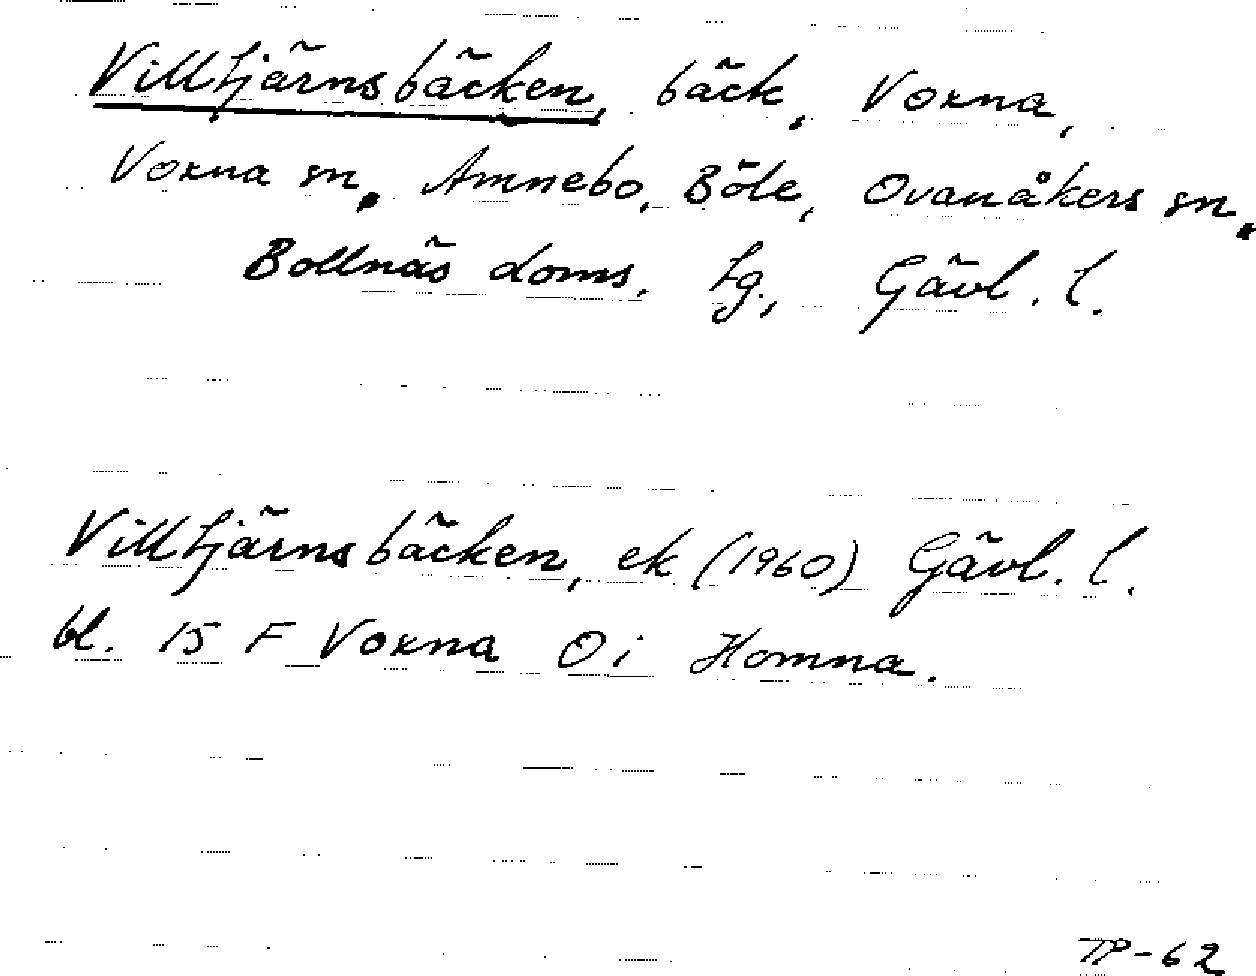 Villtjärnsbäcken, bäck, Voxna,
Voxna sn, Amnebo, Böle, Ovanåkers sn,
Bollnäs doms. tg., Gävl. l.
Villtjärnsbäcken, ek (1960) Gävl. l.
bl. 15 F Voxna O i Homna.
TP-62